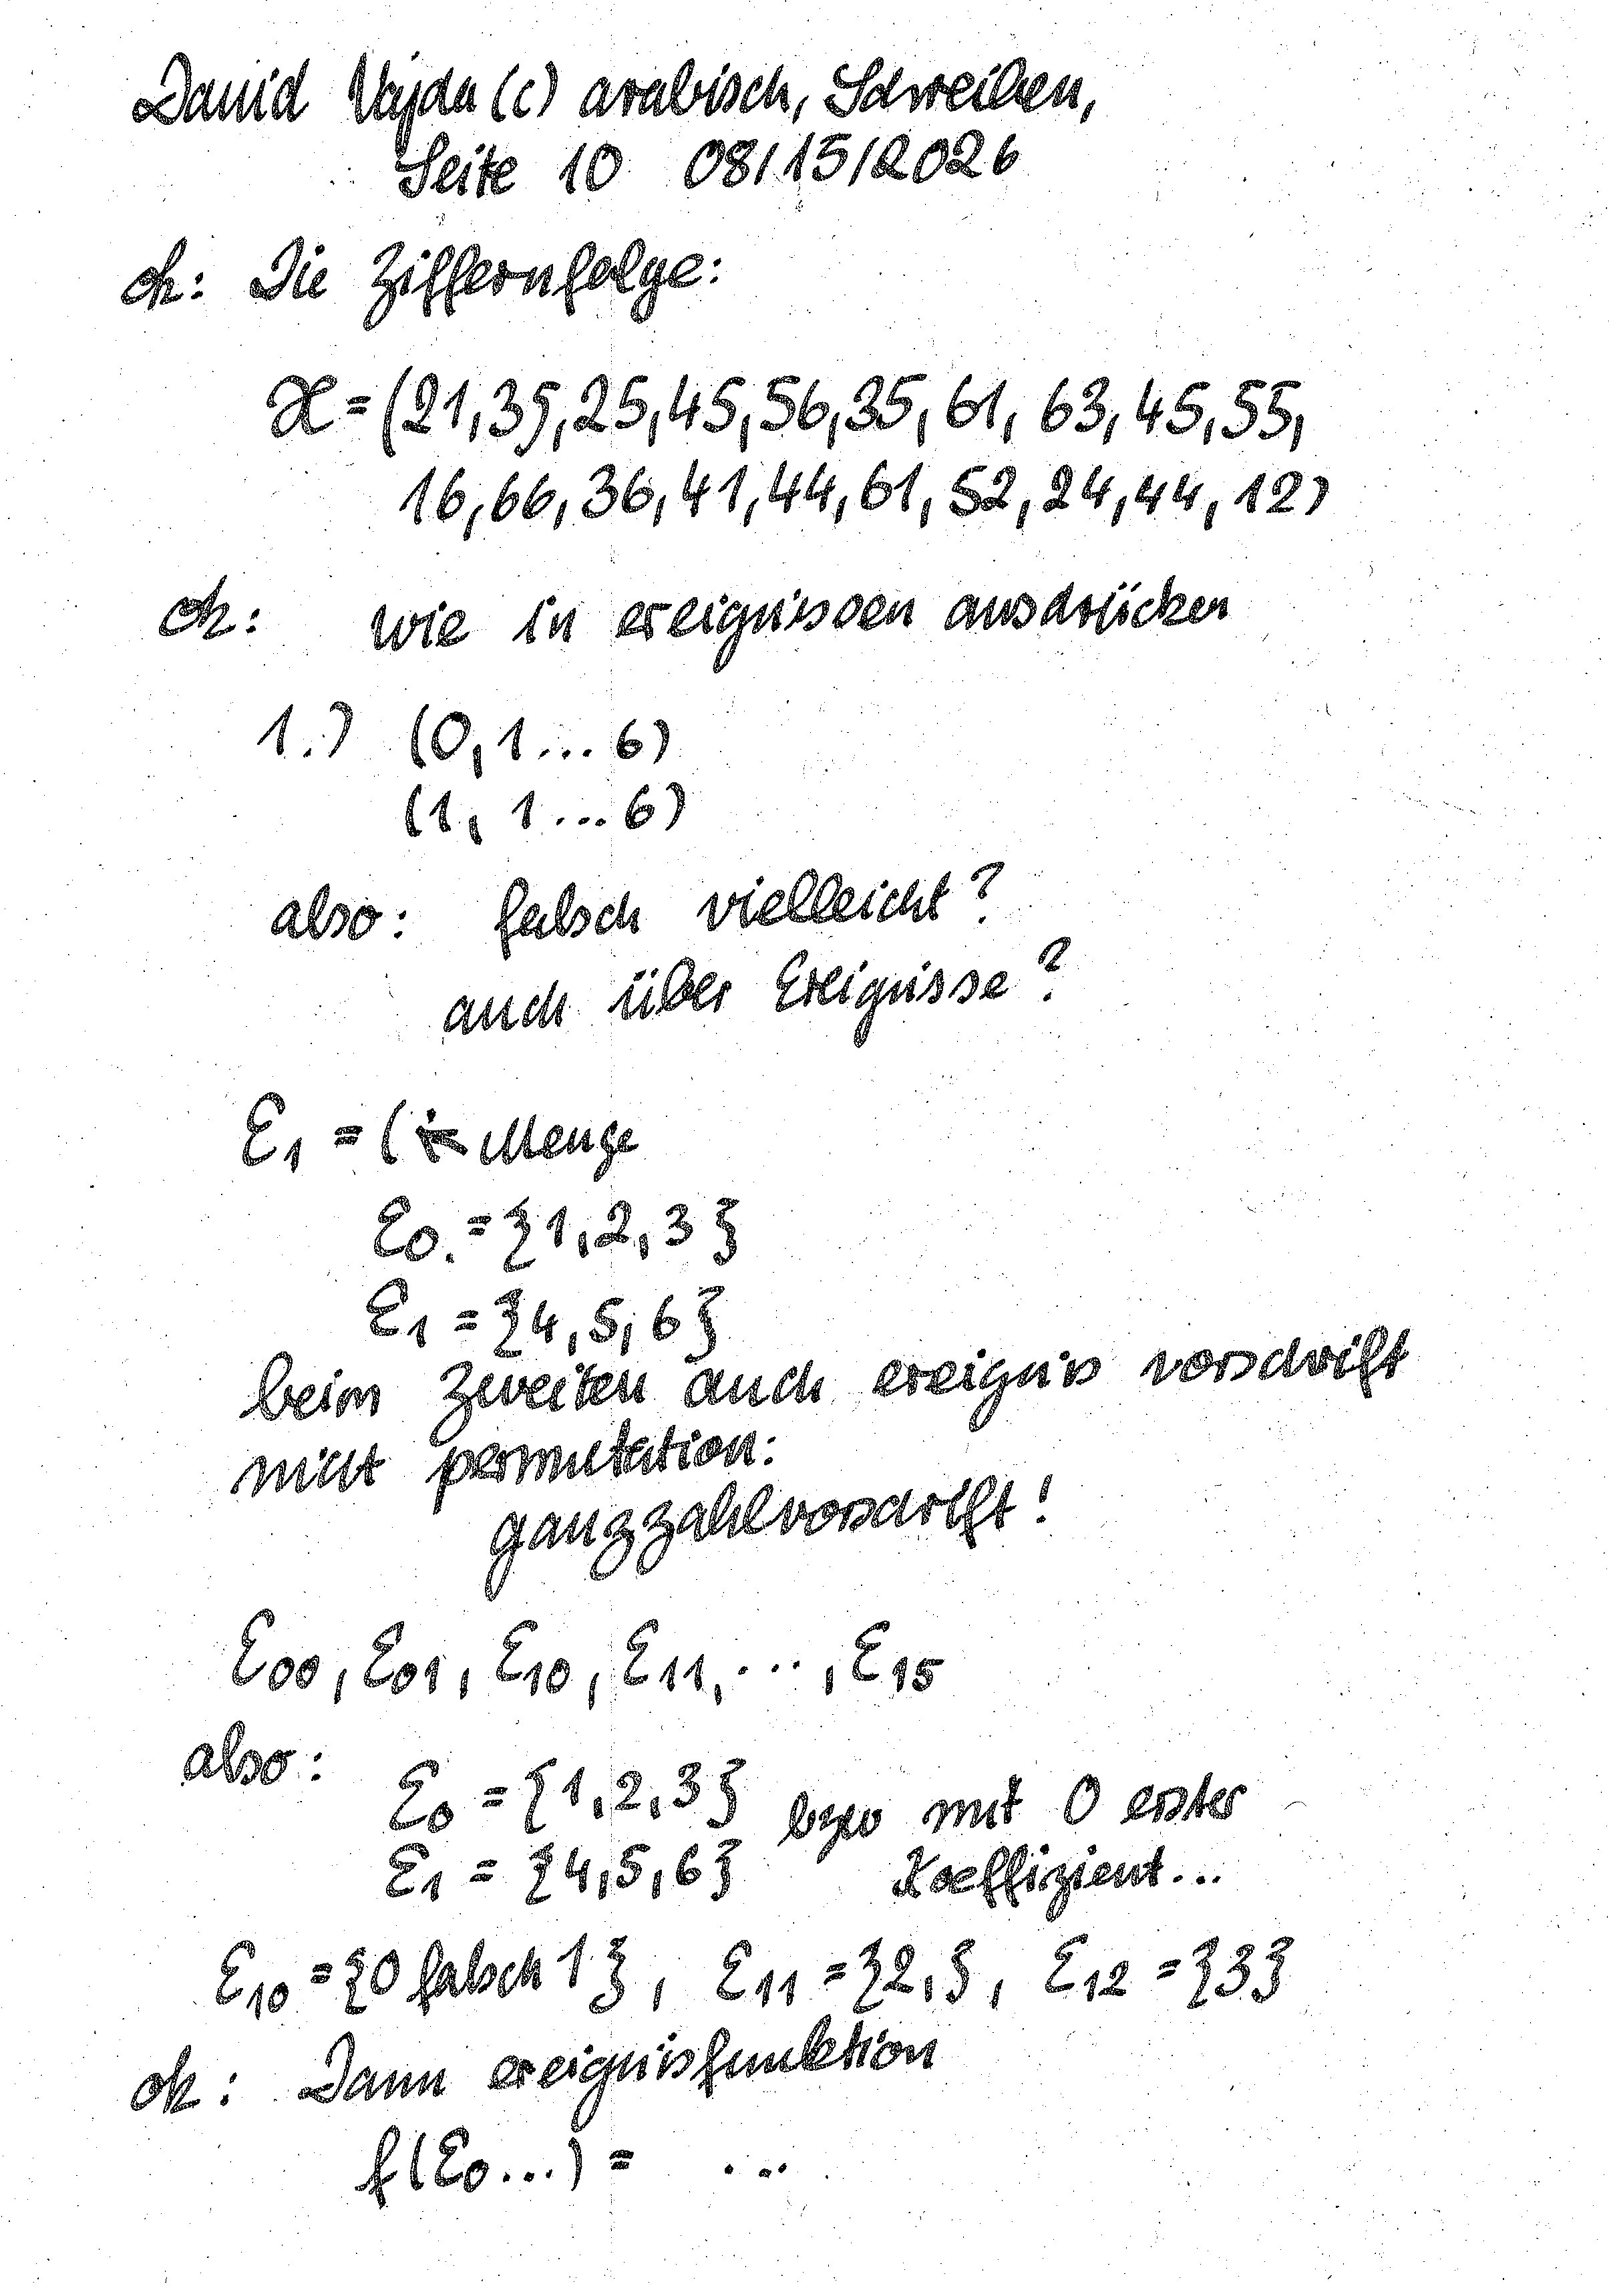 David Vajda (c) arabisch, Schreiben,
Seite 10 08/15/2026
ok: Die Ziffernfolge:
X=(21,35,25,45,56,35,61,63,45,55,
16,66,36,41,44,61,52,24,44,12)
ok: wie in ereignissen ausdrücken
1.) (0,1...6)
(1,1...6)
also: falsch vielleicht?
auch über Ereignisse?
E1 = ( Menge
E0 = {1,2,3}
E1 = {4,5,6}
beim zweiten auch ereignis vorschrift
nicht permutation:
ganzzahlvorschrift!
E00, E01, E10, E11, ..., E15
also: E0 = {1,2,3} bzw mit 0 erster
E1 = {4,5,6} Koeffizient...
E10 = {0 falsch 1}, E11 = {2,}, E12 = {3}
ok: Dann ereignisfunktion
f(E0...) = ...